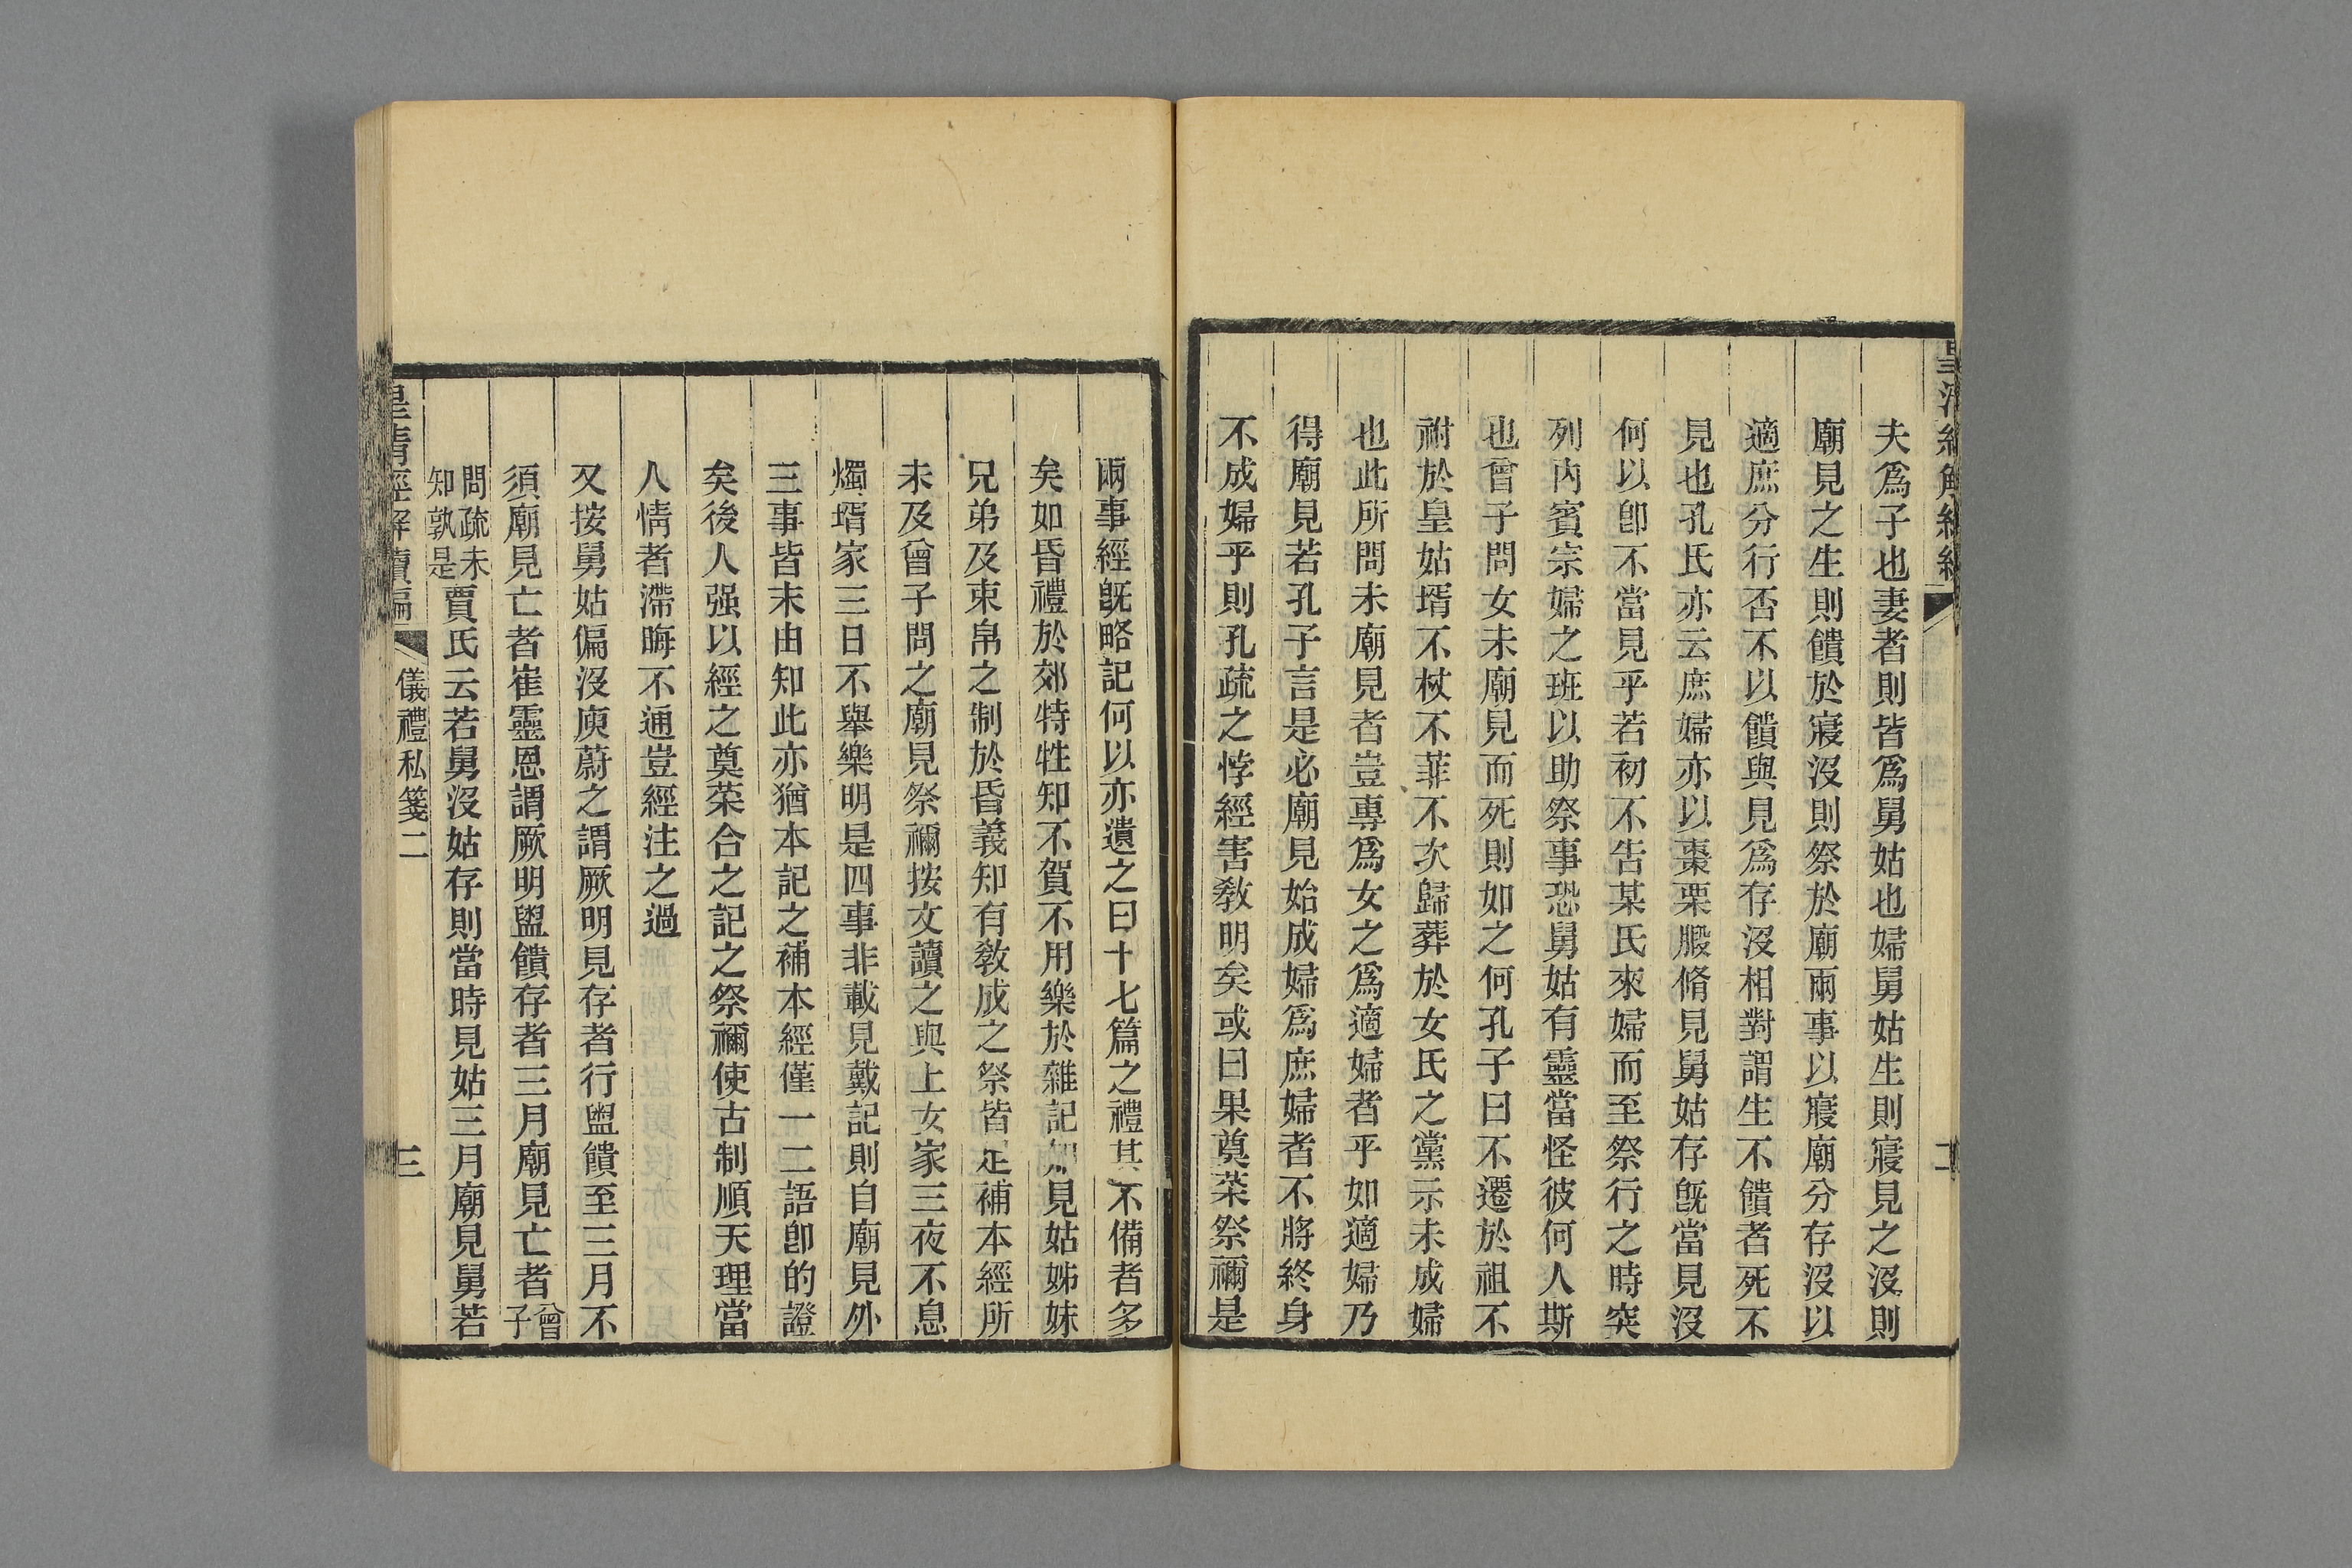 夫爲子也妻者則皆爲舅姑也婦舅姑生則寢見之沒則
廟見之生則饋於寢沒則祭於廟兩事以寢廟分存沒以
適庶分行否不以饋與見爲存沒相對謂生不饋者死不
見也孔氏亦云庶婦亦以棗栗腶脩見舅姑存旣當見沒
何以卽不當見乎若初不告某氏來婦而至祭行之時突
列內賓宗婦之班以助祭事恐舅姑有靈當怪彼何人斯
也曾子問女未廟見而死則如之何孔子曰不遷於祖不
祔於皇姑壻不杖不菲不次歸葬於女氏之黨示未成婦
也此所問未廟見者豈專爲女之爲適婦者乎如適婦乃
得廟見若孔子言是必廟見始成婦爲庶婦者不將終身
不成婦乎則孔疏之悖經害敎明矣或曰果奠菜祭禰是
兩事經旣略記何以亦遺之曰十七篇之禮其不備者多
矣如昏禮於郊特牲知不賀不用樂於雜記知見姑姊妹
兄弟及束帛之制於昏義知有敎成之祭皆足補本經所
未及曾子問之廟見祭禰按文讀之與上女家三夜不息
燭壻家三日不舉樂明是四事非載見戴記則自廟見外
三事皆末由知此亦猶本記之補本經僅一二語卽的證
矣後人强以經之奠菜合之記之祭禰使古制順天理當
人情者滯晦不通豈經注之過
又按舅姑偏沒庾蔚之謂厥明見存者行盥饋至三月不
須廟見亡者崔靈恩謂厥明盥饋存者三月廟見亡者曾子
問疏未知孰是賈氏云若舅沒姑存則當時見姑三月廟見舅若
皇清經解續編
儀禮私箋二
三